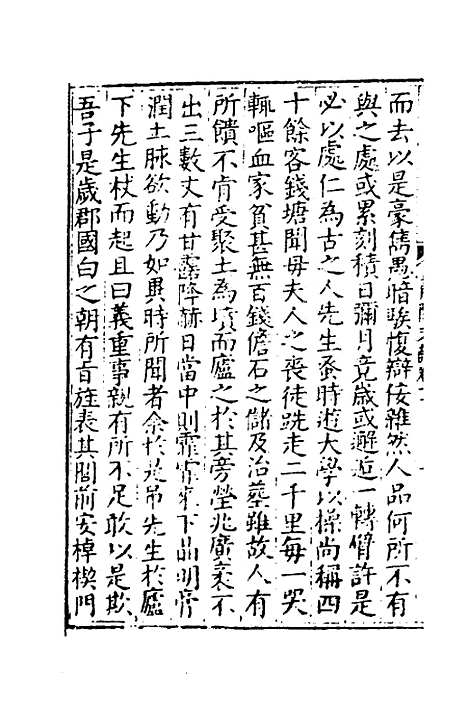 而去以是豪雋愚暗唉愎辯佞雜然人品何所不有
與之處或累刻積日彌月竟歲或邂逅一轉僧許是
必以處仁為古之人先生蚤時遊大學以操尚稱四
十餘客錢塘聞毋夫人之喪徒跣走二千里每一哭
輒嘔血家貧甚無百錢儋石之儲及治葬雖故人有
所饋不肯受聚土為墳而廬之於其旁塋兆廣袤不
出三數丈有甘露降赫日當中則霏霏下品明膏
潤土脉欲動乃如異時所聞者余於是吊先生於廬
下先生杖而起且曰義重事親有所不足敢以是欺
吾子是歲郡國白之朝有旨旌表其閭前安棹楔門